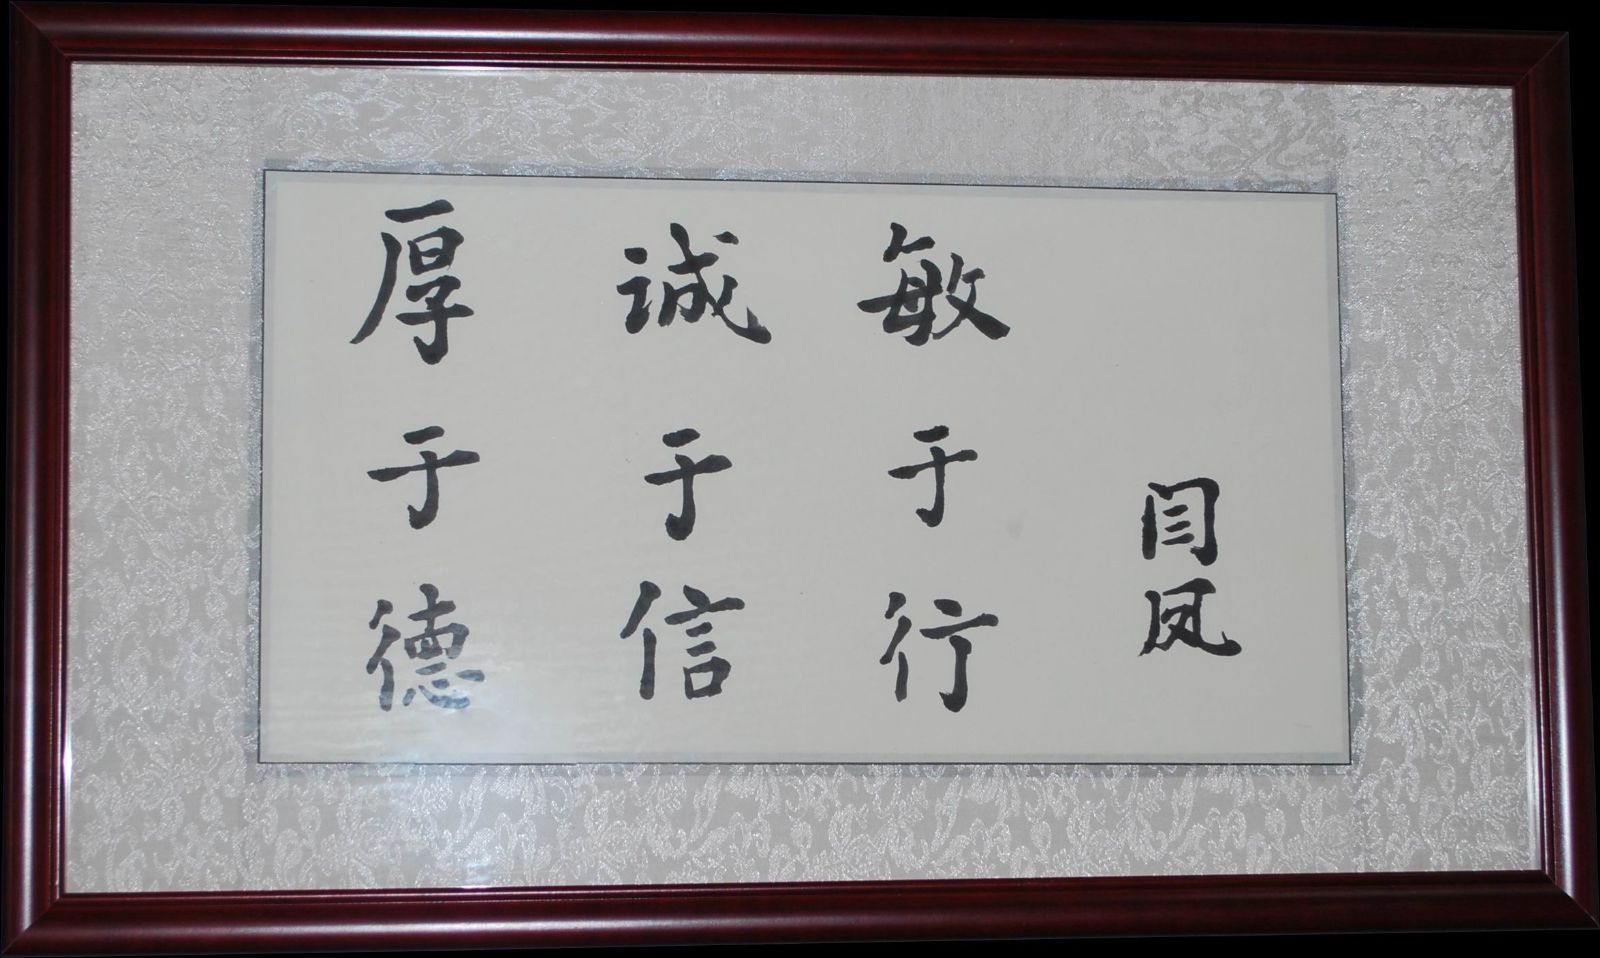 厚于德
诚于信
敏于行
闫凤